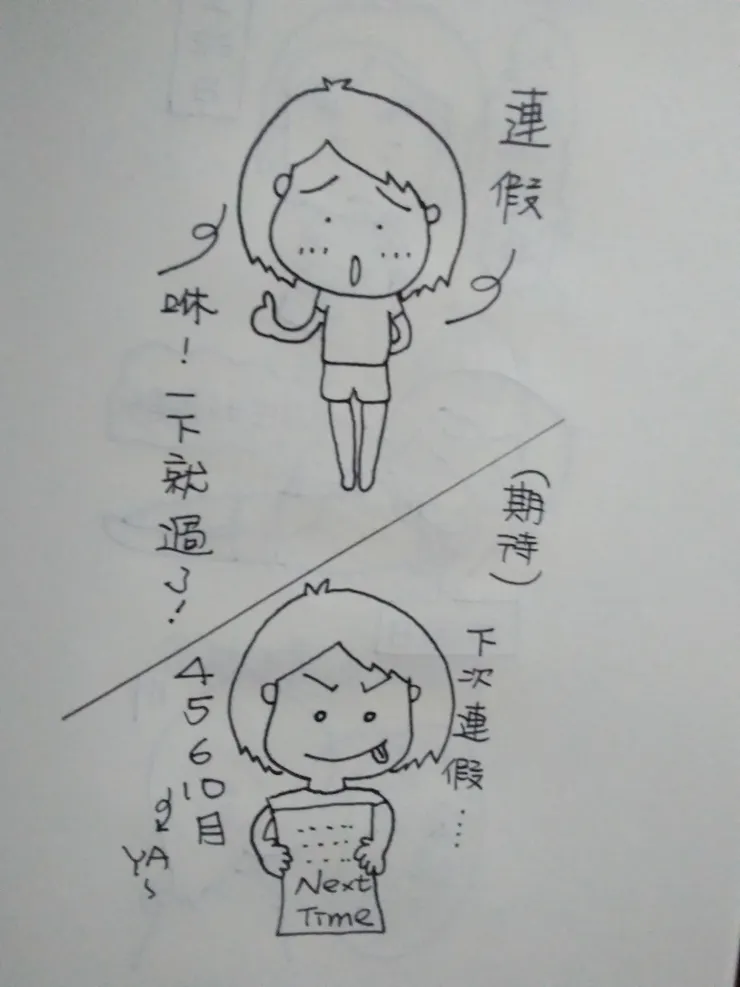 連假
咻!一下就過了!
(期待)
下次連假....
4 5 6 10目
YA~
Next
Time